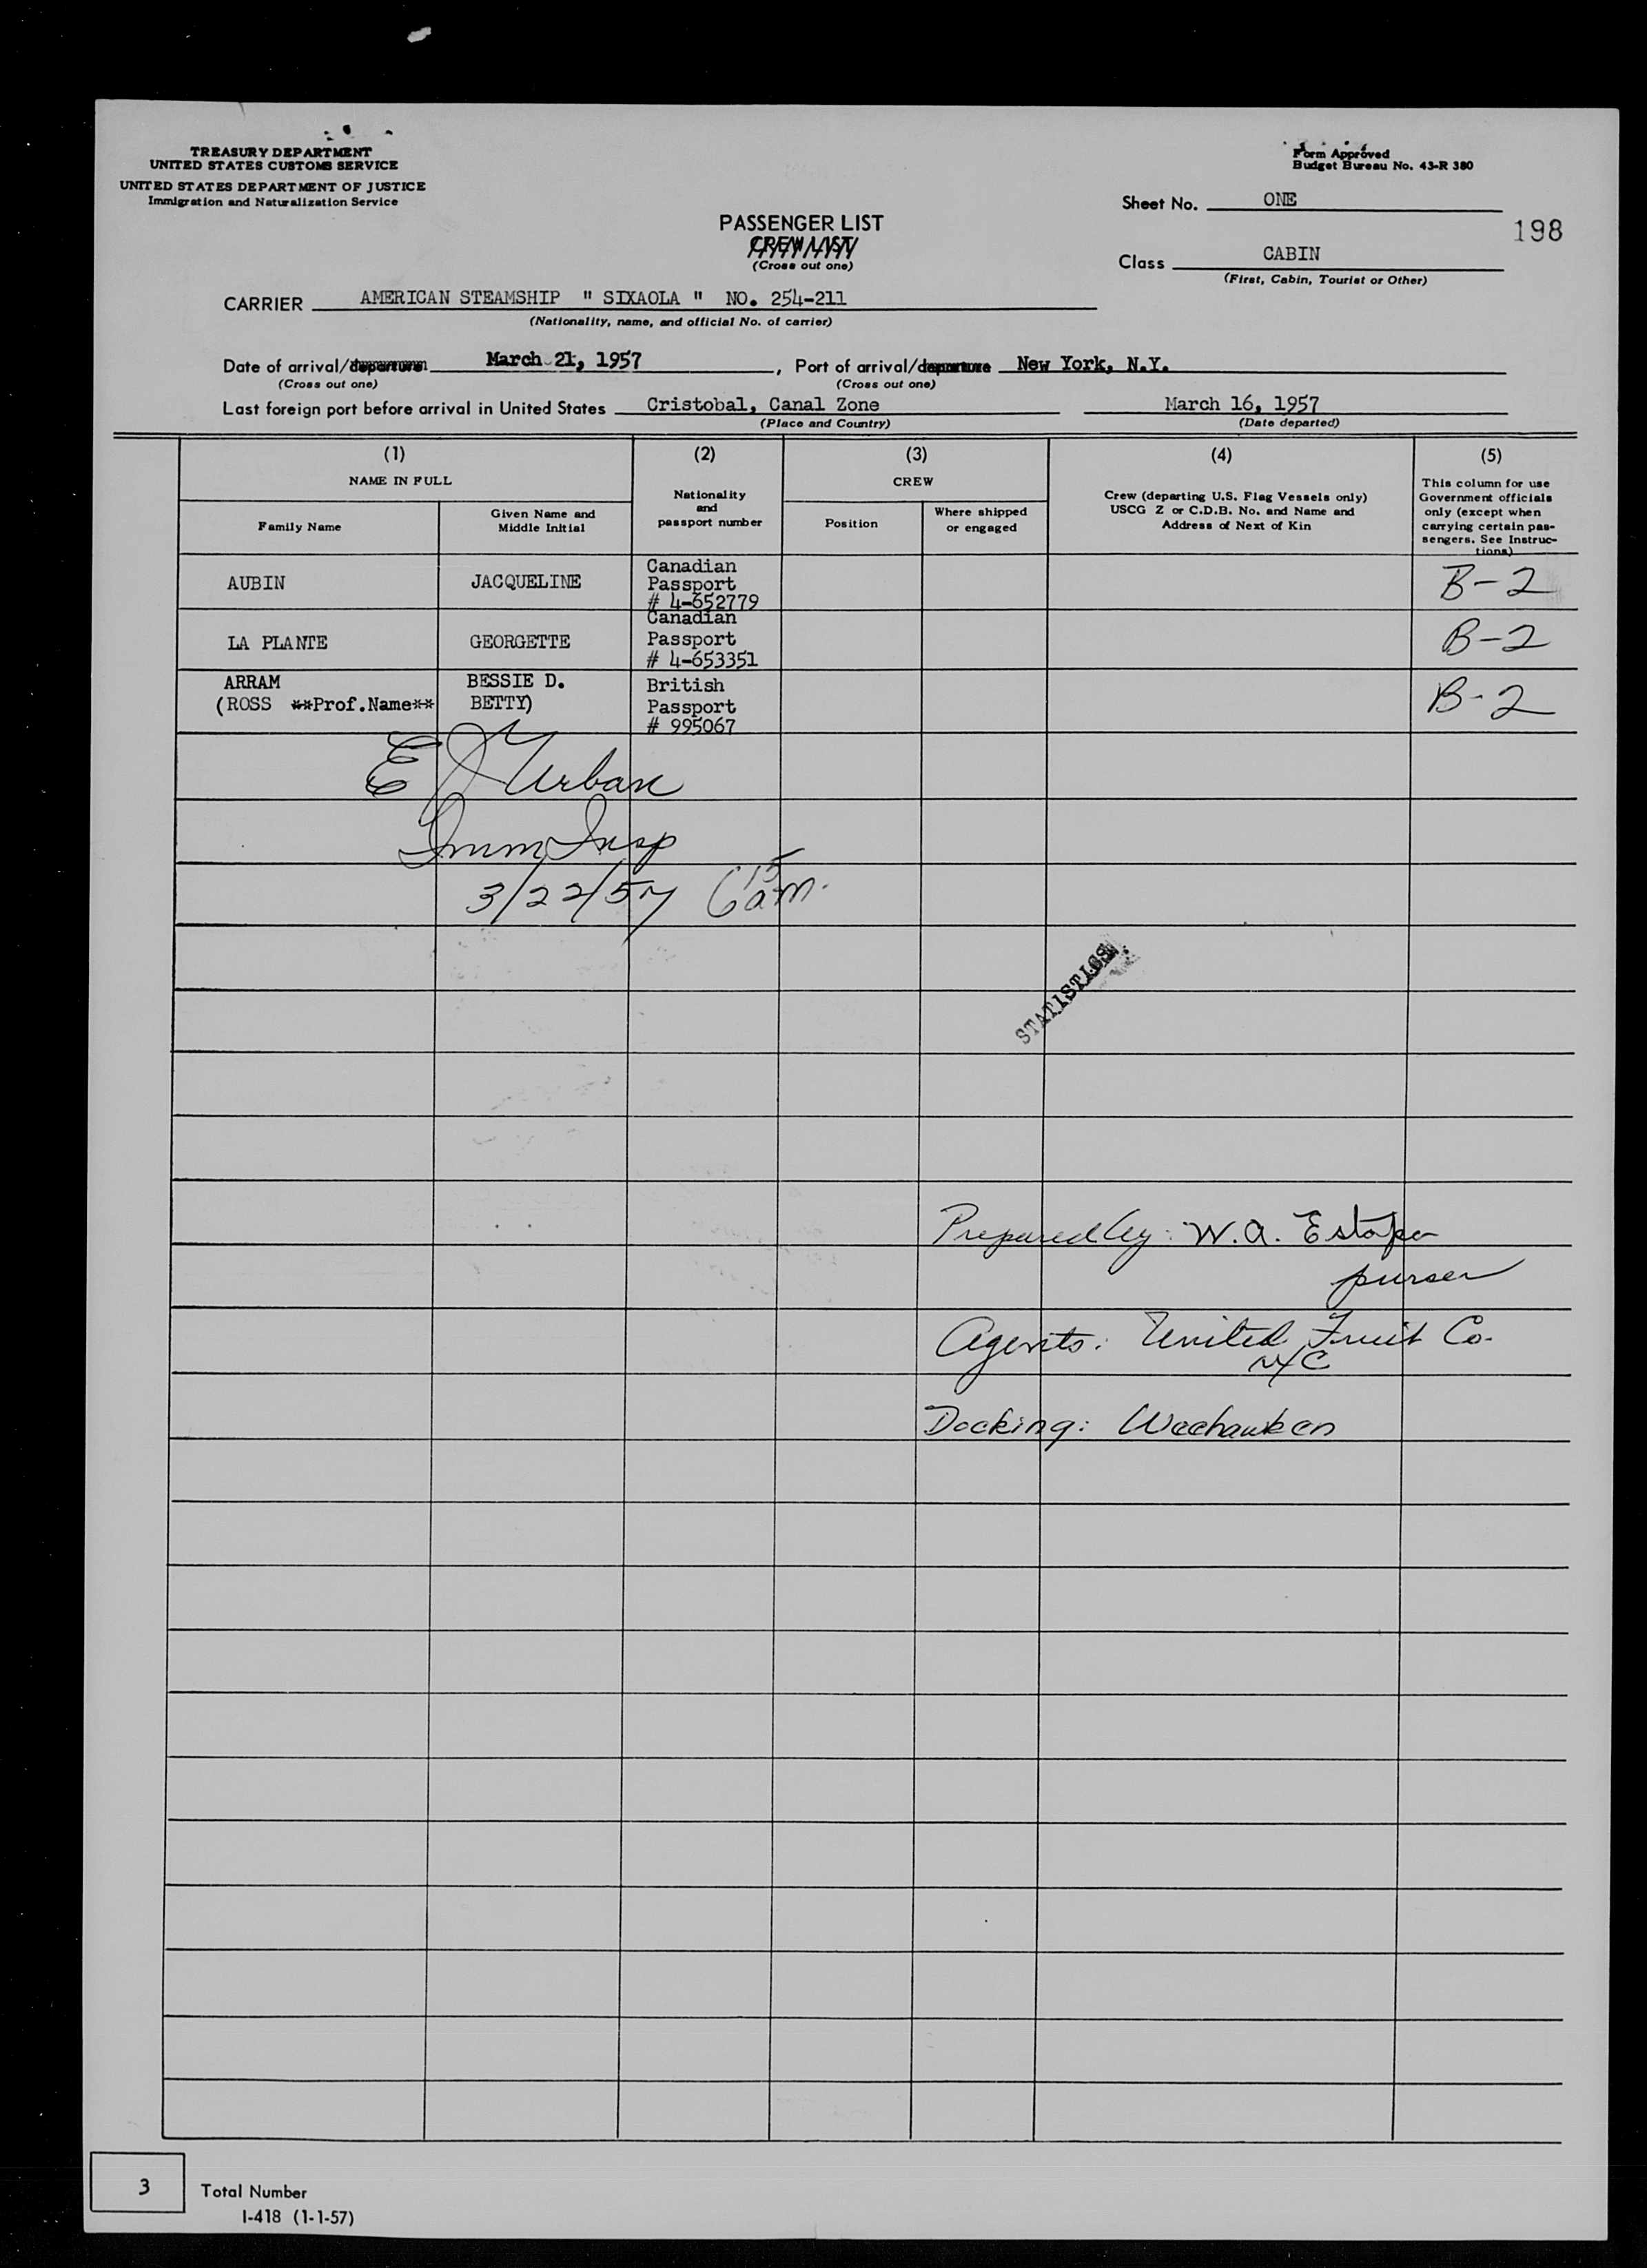 TREASURY DEPARTMENT
UNITED STATES CUSTOMS SERVICE
UNITED STATES DEPARTMENT OF JUSTICE
Immigration and Naturalization Service
Form Approved
Budget Bureau No. 43-R 380
Sheet No. ONE
198
PASSENGER LIST
CREW LIST
(Cross out one)
Class CABIN
(First, Cabin, Tourist or Other)
CARRIER AMERICAN STEAMSHIP " SIXAOLA " NO. 254-211
(Nationality, name, and official No. of carrier)
Date of arrival/departure March 21, 1957, Port of arrival/departure New York, N.Y.
(Cross out one) (Cross out one)
Last foreign port before arrival in United States Cristobal, Canal Zone March 16, 1957
(Place and Country) (Date departed)
(1) (2) (3) (4) (5)
NAME IN FULL
Family Name
Given Name and
Middle Initial
Nationality
and
passport number
CREW
Position
Where shipped
or engaged
Crew (departing U.S. Flag Vessels only)
USCG Z or C.D.B. No. and Name and
Address of Next of Kin
This column for use
Government officials
only (except when
carrying certain pas-
sengers. See Instruc-
tions)
AUBIN JACQUELINE Canadian
Passport
# 4-652779
B-2
LA PLANTE GEORGETTE Canadian
Passport
# 4-653351
B-2
ARRAM BESSIE D. British
(ROSS **Prof.Name** BETTY) Passport
# 995067
B-2
E J Urban
Imm Insp
3/22/57 6 15 am.
STATISTICS
Prepared by: W.A. Estopa
purser
Agents: United Fruit Co.
NYC
Docking: Weehawken
3 Total Number
I-418 (1-1-57)